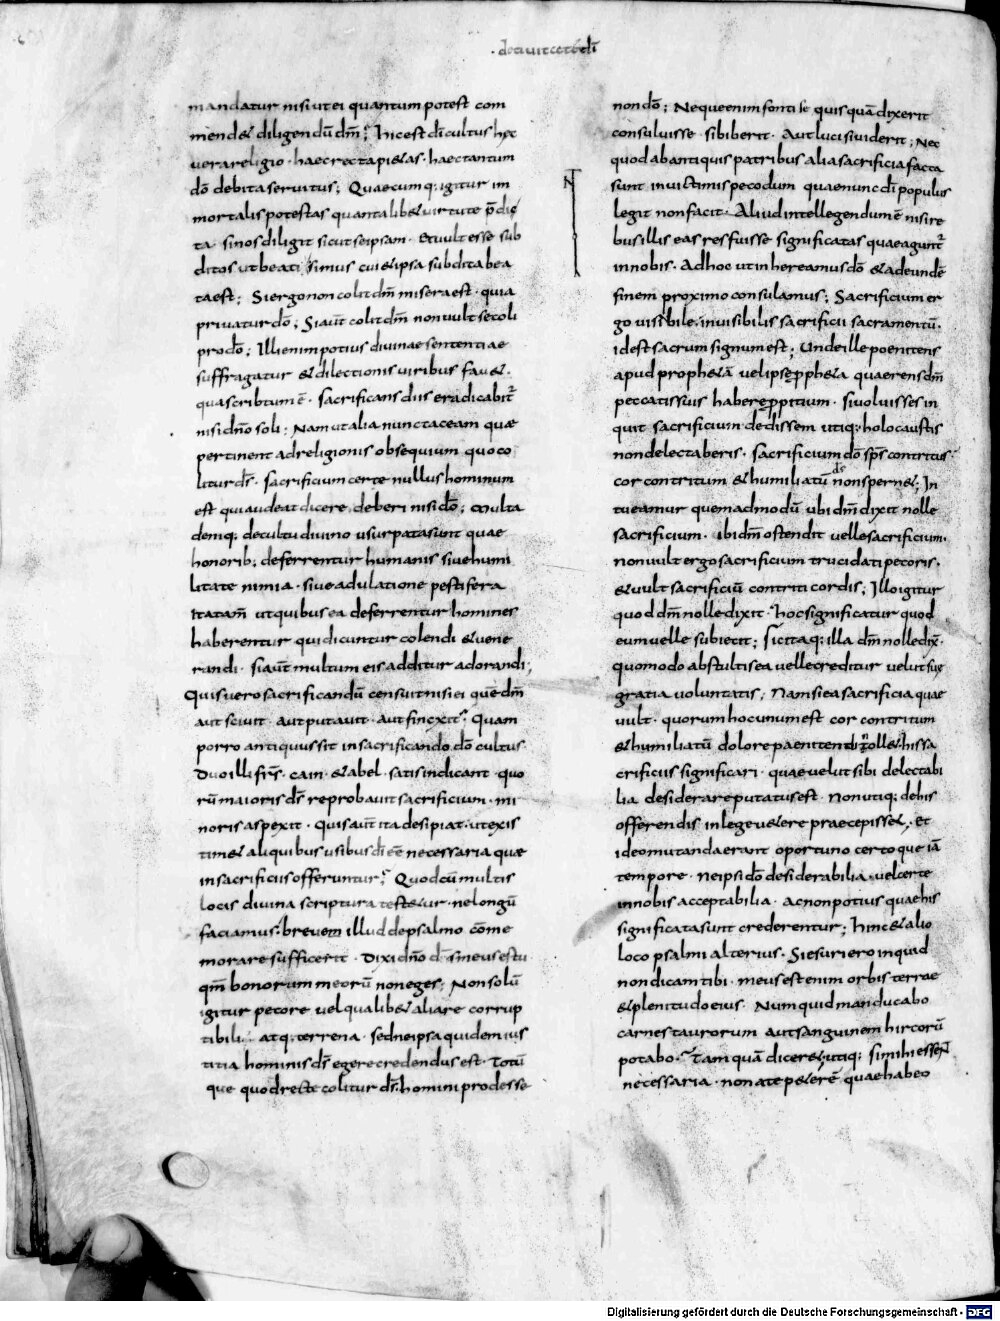 · de ciuitcet ƀ dī
mandatur nisi ut ei quantum potest com
mend& diligendū dm̄; Hic est dī cultus hęc
uera religio · haec recta pi&as · haec tantum
dō debita seruitus; Quaecumq; igitur im
mortalis potestas quantalib& uirtute p̄dic
ta · si nos diligit sicut seipsam · Et uult esse sub
ditos ut beati simus cui & ipsa subdita bea
ta est; Si ergo non colit dm̄ misera est · quia
priuatur dō; Si aūt colit dm̄ non uult se coli
pro dō; Illi enim potius diuinae sententiae
suffragatur & dilectionis uiribus fau& ·
qua scribtum ē · sacrificans diis eradicabit̄
nisi dn̄o soli; Nam ut alia nunc taceam quae
pertinent ad religionis obsequium quo co
litur ds̄ · sacrificium certe nullus hominum
est qui audeat dicere deberi nisi dō; Multa
deniq; de cultu diuino usurpata sunt quae
honorib; deferrentur humanis siue humi
litate nimia · siue adulatione pestifera
Ita tam̄ ut quibus ea deferrentur homines
haberentur qui dicuntur colendi & uene
randi · si aūt multum eis additur adorandi;
Quis uero sacrificandū censuit nisi ei quē dm̄
aut sciuit · aut putauit · aut finxit; Quam
porro antiquus sit in sacrificando dō cultus
Duo illi frs̄ · cain · & abel · satis indicant · quo
rū maioris ds̄ reprobauit sacrificium · mi
noris aspexit · Quis aūt ita desipiat · ut exis
tim& aliquibus usibus dī eē necessaria quae
in sacrificiis offeruntur; Quod cū multis
locis diuina scriptura test&ur · ne longū
faciamus · breuem illud de psalmo cōme
morare sufficerit · Dixi dn̄o ds̄ meus es tu
qm̄ bonorum meorū non eges; Non solū
igitur pecore uel qualib& alia re corrup
tibili atq; terrena · sed ne ipsa quidem ius
titia hominis ds̄ egere credendus est · Totū
que quod recte colitur ds̄ · homini prodesse
non dō; Neque enim fonti se quisquā dixerit
consuluisse · si biberit · Aut luci si uiderit; Nec
quod ab antiquis patribus alia sacrificia facta
sunt in uictimis pecodum quae nunc dī populus
legit non facit · Aliud intellegendum ē nisi re
bus illis eas res fuisse significatas quae agunt̄
in nobis · Ad hoc ut inhereamus dō & ad eundē
finem proximo consulamus; Sacrificium er
go uisibile · inuisibilis sacrificii sacramentū ·
id est sacrum signum est; Unde ille poenitens
apud proph&ā uel ipse pph&a quaerens dm̄
peccatis suis habere ppitium · si uoluisses in
quit sacrificium dedissem utiq; holocaustis
non delectaberis · sacrificium dō sps̄ contritus ·
cor contritum & humiliatū ds̄ non spern&; In
tueamur quemadmodū ubi dm̄ dixit nolle
sacrificium · ibi dm̄ ostendit uelle sacrificium ·
non uult ergo sacrificium trucidati pecoris ·
& uult sacrificiū contriti cordis; Illo igitur
quod dm̄ nolle dixit · hoc significatur quod
eum uelle subiecit; sic itaq; illa dm̄ nolle dix̄ ·
quomodo ab stultis ea uelle creditur uelut suę
gratia uoluntatis; Nam si ea sacrificia quae
uult · quorum hoc unum est cor contritum
& humiliatū dolore paenitendi · noll& his sa
crificiis significari · quae uelut sibi delectabi
lia desiderare putatus est · non utiq; de his
offerendis in lege u&ere praecepiss& · Et
ideo mutanda erant oportuno certoque iā
tempore · ne ipsi dō desiderabilia · uel certe
in nobis acceptabilia · ac non potius quae his
significata sunt crederentur; Hinc & alio
loco psalmi alterius · Si esuriero inquid
non dicam tibi · meus est enim orbis terrae
& plenitudo eius · Numquid manducabo
carnes taurorum aut sanguinem hircorū
potabo; Tamquā dicer& utiq; si mihi essent
necessaria · non a te p&erē quae habeo
Digitalisierung gefördert durch die Deutsche Forschungsgemeinschaft - DFG